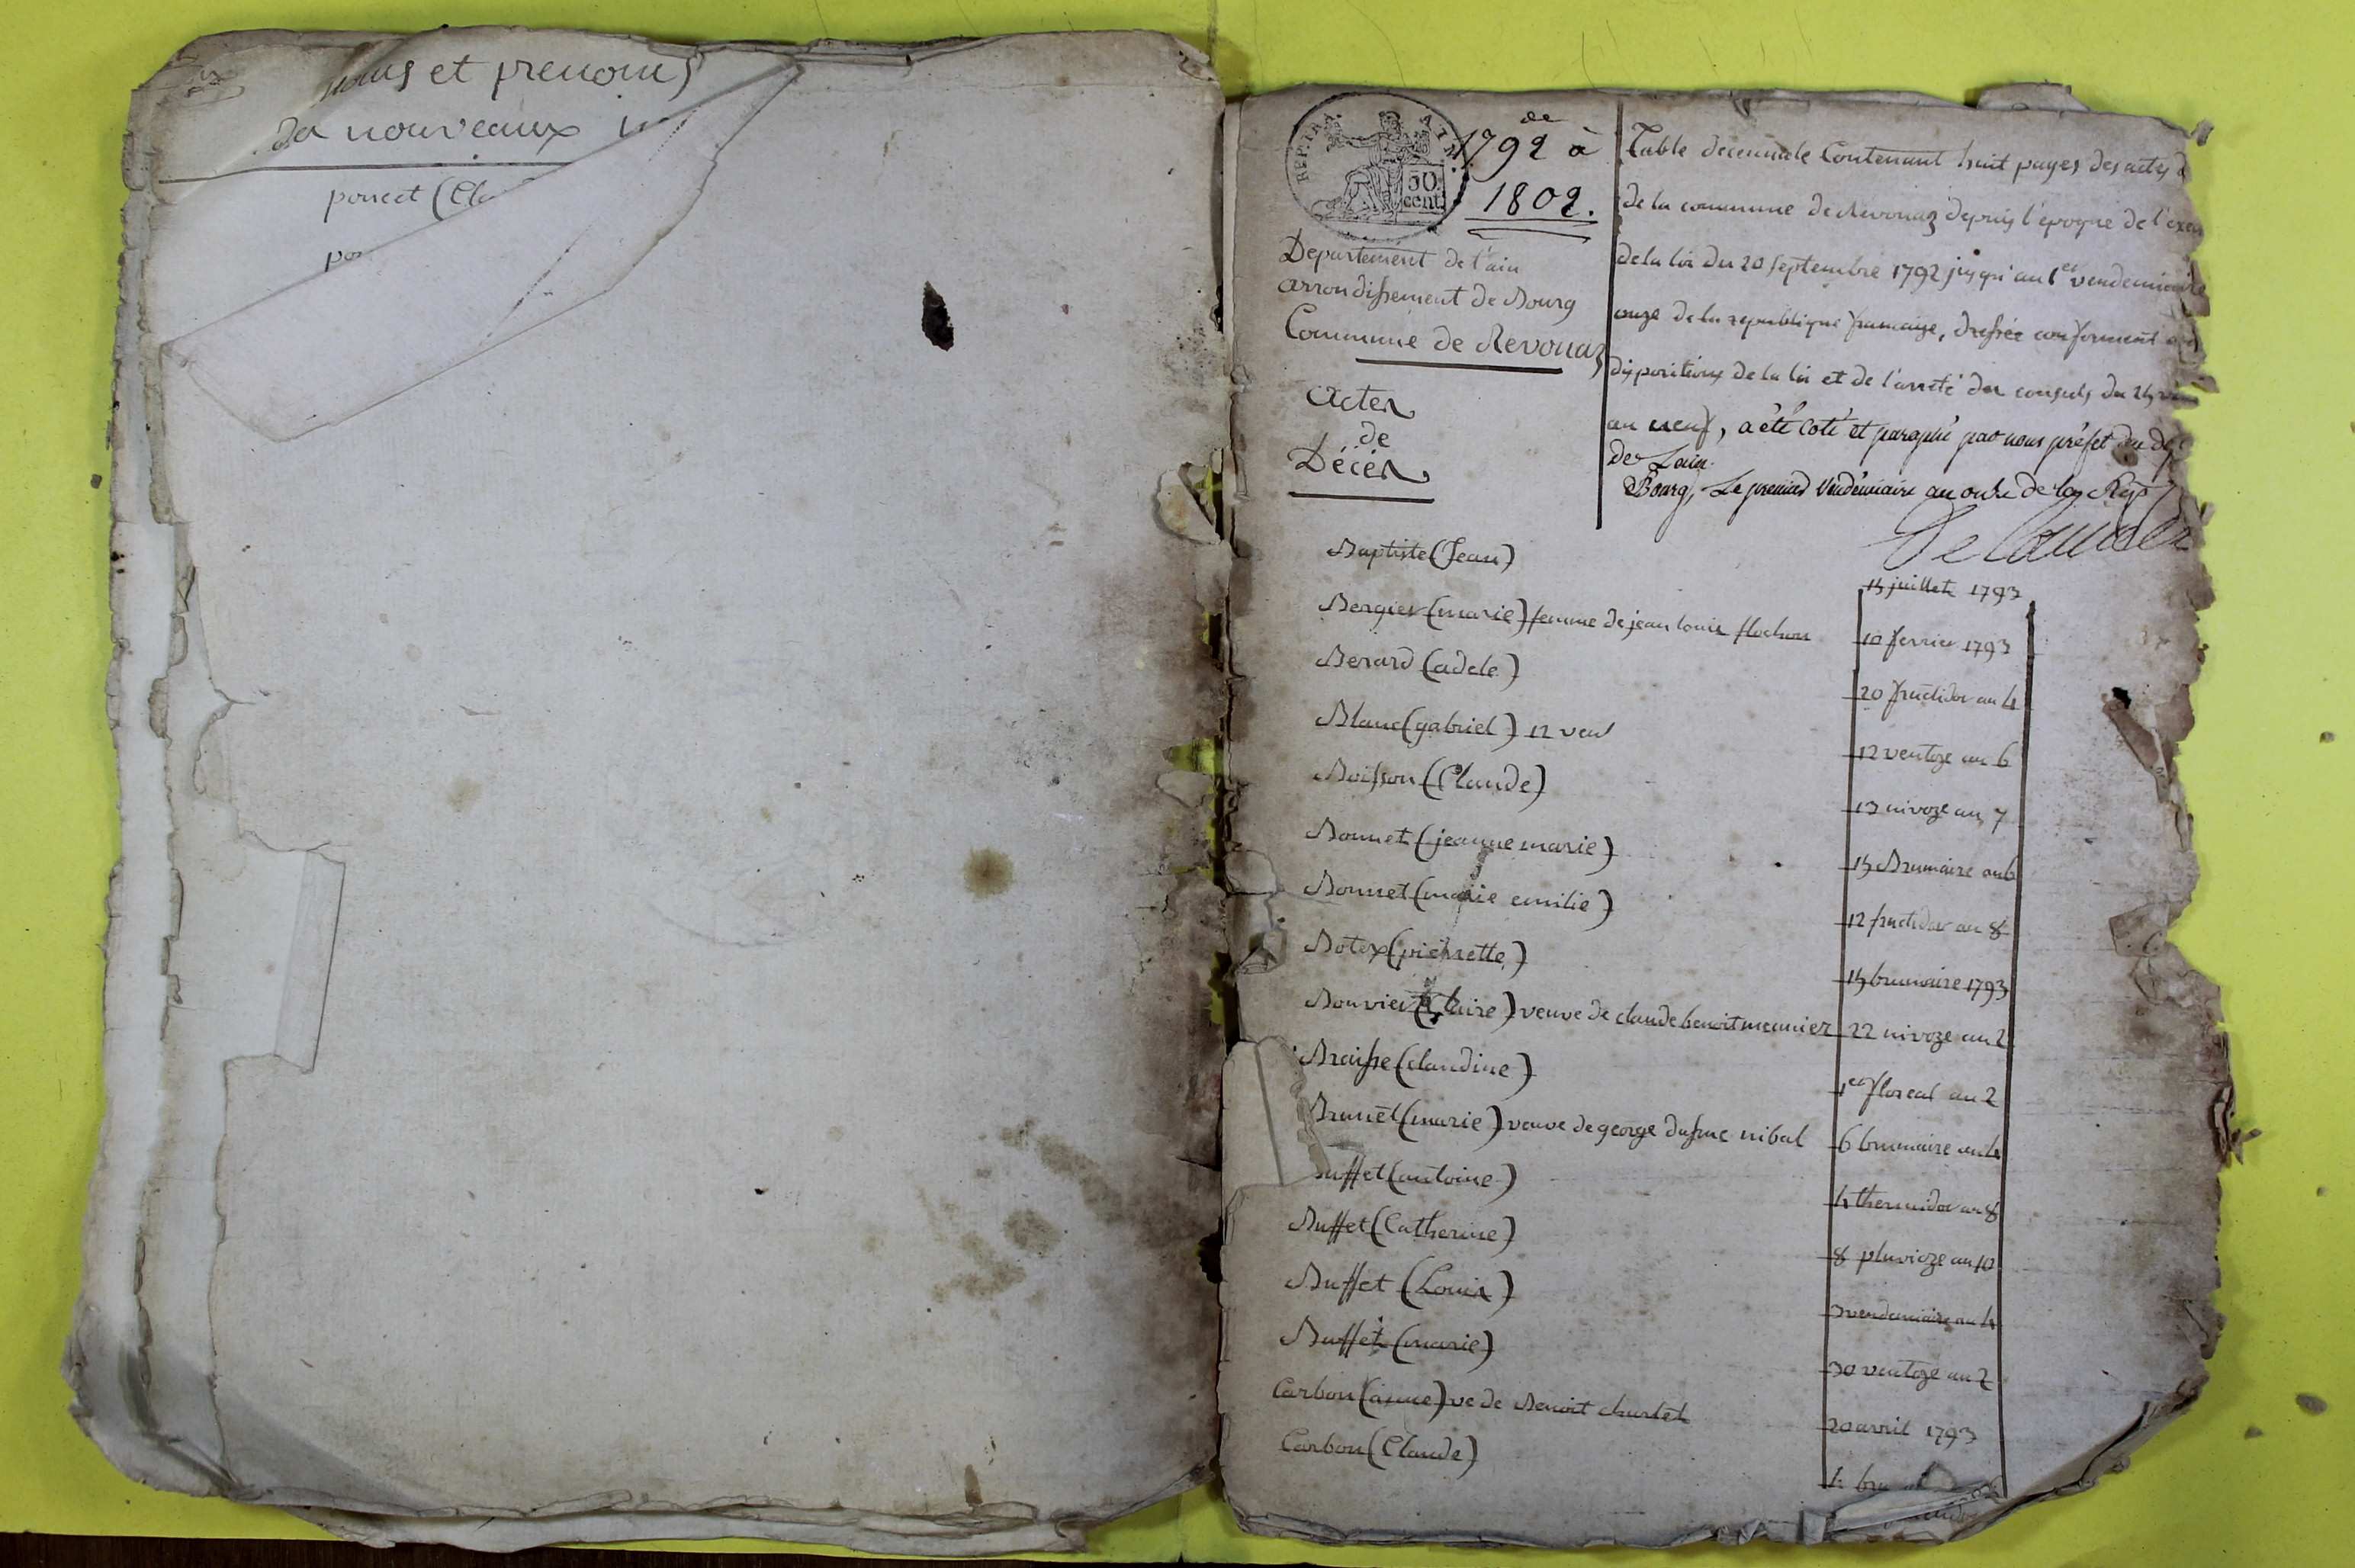 noms et prenoms
des nouveaux
poncet (Cla
po
de
1792 à
1802.
50
cent.
Departement de l'ain
arrondissement de Bourg
Commune de Revonaz
Actes
de
Décès
Table decennale Contenant huit pages des actes d
de la commune de Revonaz depuis l'époque de l'exe
de la loi du 20 septembre 1792 jusqu'au 1er vendemiaire
onze de la republique francaise, dressée conforment aux
dispositions de la loi et de l'arreté des consuls du 25
an neuf, a été Coté et paraphé par nous préfet du dep
de L'ain.
Bourg, Le premier Vendémiaire an onze de la Rep
Baptiste (Jean) 15 juillet 1793
Bergier (marie) femme de jean louis flochon 10 fevrier 1793
Berard (adele) 20 fructidor an 4
Blanc (gabriel) 12 ven 12 ventoze an 6
Boisson (Claude) 13 nivoze an 7
Bonnet (jeanne marie) 15 Brumaire an 6
Bonnet (marie emilie) 12 fructidor an 8
Botex (pierrette) 15 brumaire 1793
Bouvier (Claire) veuve de claude benoit meunier 22 nivoze an 2
Braisse (claudine) 1er floreal an 2
Brunet (marie) veuve de george 6 brumaire an 4
uffet (antoine) 4 thermidor an 8
Buffet (Catherine) 8 pluvioze an 10
Buffet (Louis) 3 vendemiaire an 4
Buffet (marie) 30 ventoze an 2
Carbon (anne) ve de Benoit 20 avril 1793
Carbon (Claude) 4 bru